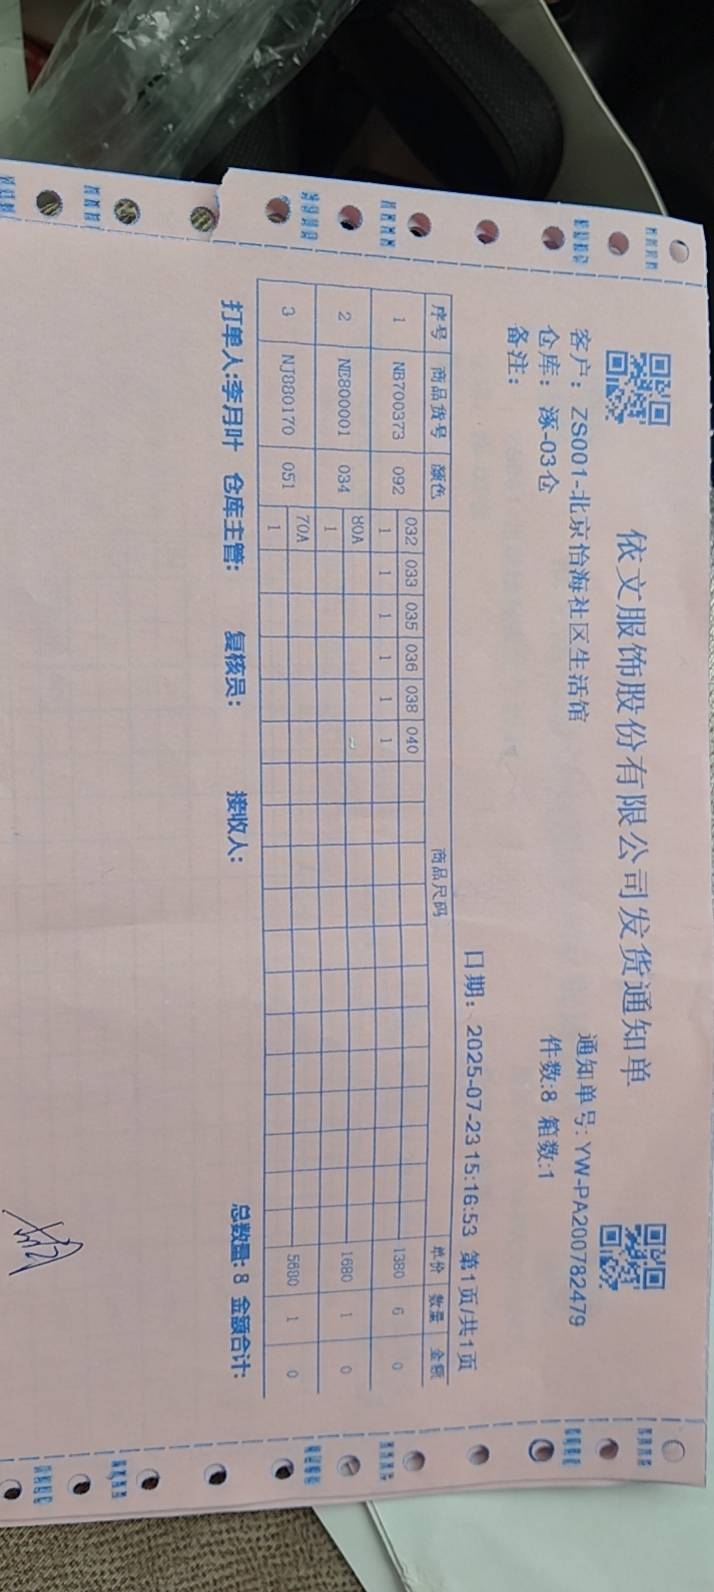 依文服饰股份有限公司发货通知单
客户：ZS001-北京怡海社区生活馆 通知单号：YW-PA200782479
仓库：涿-03仓 件数:8 箱数:1
备注：
日期：2025-07-23 15:16:53 第1页/共1页
序号 商品货号 颜色 商品尺码 单价 数量 金额
032 033 035 036 038 040
1 NB700373 092 1 1 1 1 1 1 1380 6 0
80A
2 NE800001 034 1 1680 1 0
70A
3 NJ880170 051 1 5680 1 0
打单人:李月叶 仓库主管: 复核员: 接收人: 总数量: 8 金额合计: